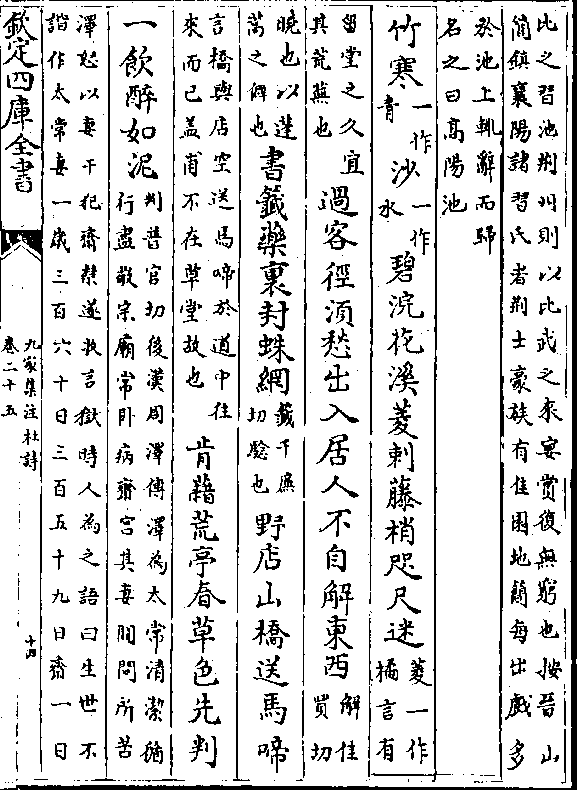 比之習池荆州則以比武之來宴賞復無窮也按晉山
簡鎮襄陽諸習氏者荆士豪族有佳園地簡每出戲多
於池上輒辭而歸
名之曰高陽池
竹寒一作青沙一作水碧浣花溪菱刺藤梢咫尺迷菱一作橘言有
留堂之久宜其荒蕪也過客徑湏愁出入居人不自解東西解佳買切
曉也以蓬蒿之僻也書籤藥裏封蛛網籤千㢘切驗也野店山橋送馬啼
言橋與店空送馬啼於道中往來而已盖甫不在草堂故也肯藉荒亭春草色先判
一飲醉如泥判普官切後漢周澤傳澤為太常清潔循行盡敬宗廟常卧病齋宫其妻闚問所苦
澤怒以妻干犯齋禁遂收言獄時人為之語曰生世不
諧作太常妻一歳三百六十日三百五十九日齋一日
欽定四庫全書
九家集注杜詩
卷二十五
十四